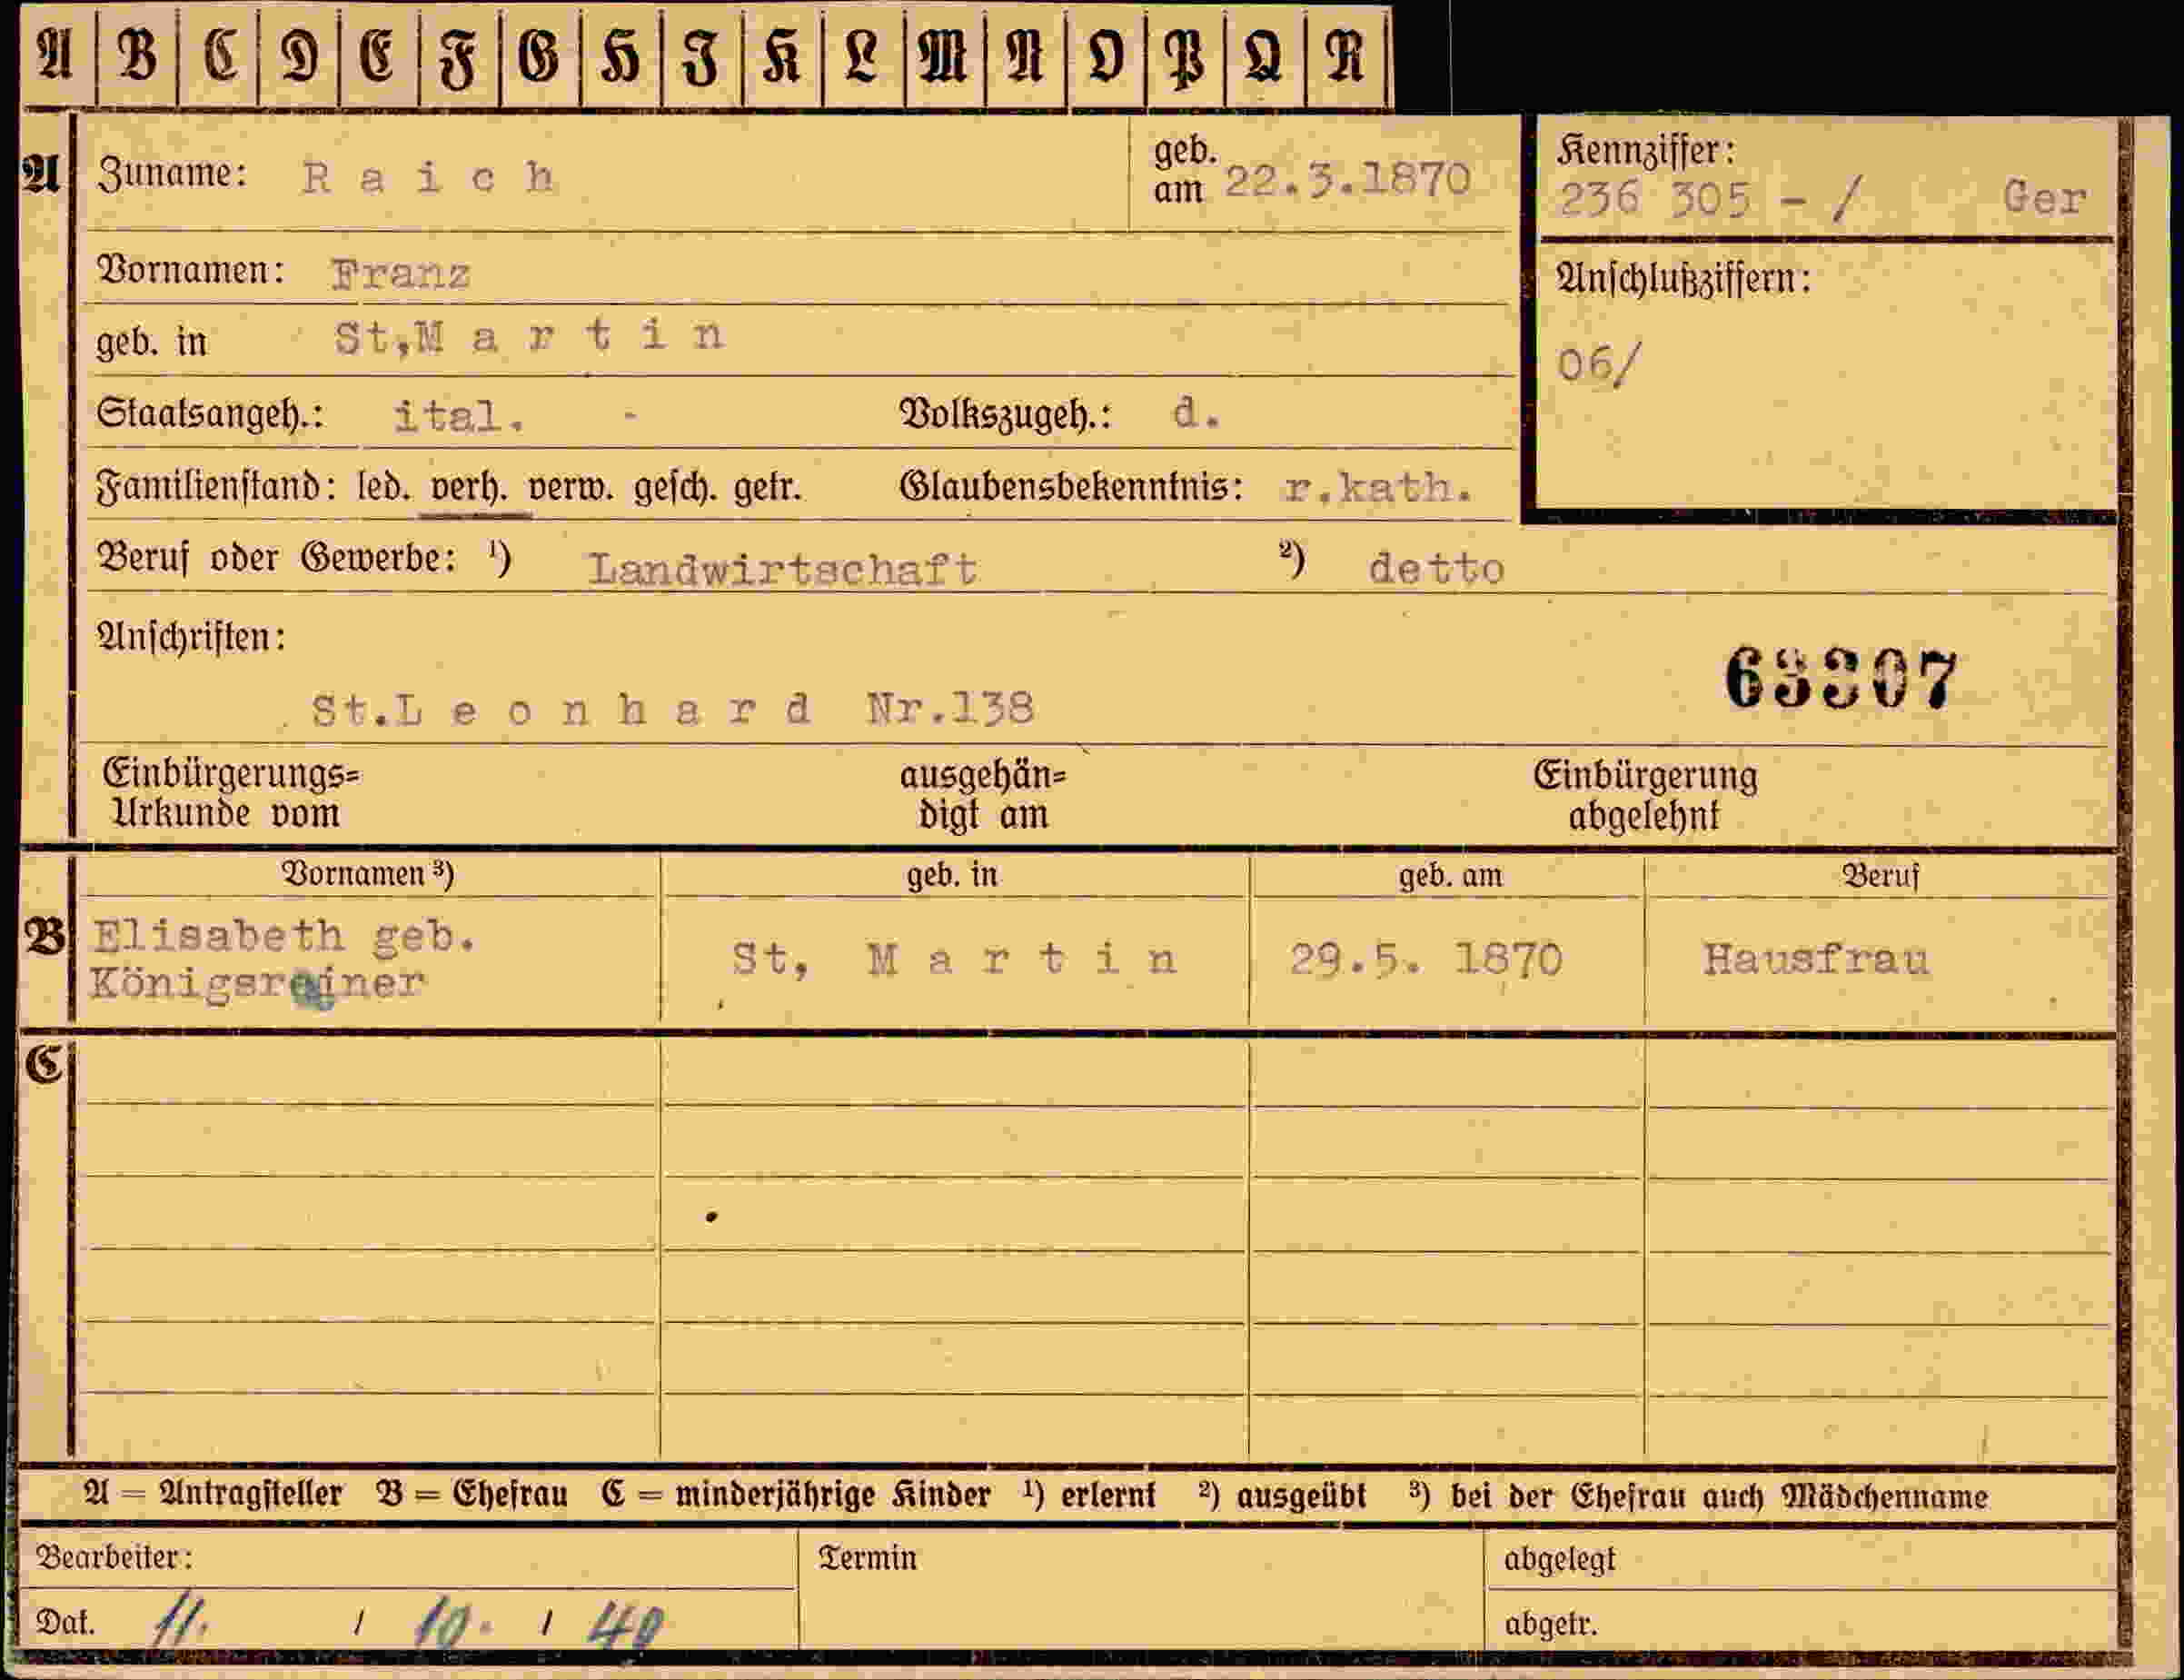 A B C D E F G H I K L M N O P Q R
A Zuname: Raich geb. am 22.3.1870
Kennziffer:
236 305 - / Ger
Vornamen: Franz
Anschlußziffern:
geb. in St,Martin
06/
Staatsangeh.: ital. - Volkszugeh.: d.
Familienstand: led. verh. verw. gesch. getr. Glaubensbekenntnis: r.kath.
Beruf oder Gewerbe: ¹) Landwirtschaft ²) detto
Anschriften:
63307
St.Leonhard Nr.138
Einbürgerungs= ausgehän= Einbürgerung
Urkunde vom digt am abgelehnt
Vornamen ³) geb. in geb. am Beruf
B Elisabeth geb.
Königsreiner St, Martin 29.5. 1870 Hausfrau
C
A = Antragsteller B = Ehefrau C = minderjährige Kinder ¹) erlernt ²) ausgeübt ³) bei der Ehefrau auch Mädchenname
Bearbeiter: Termin abgelegt
Dat. 11. / 10. / 40 abgetr.